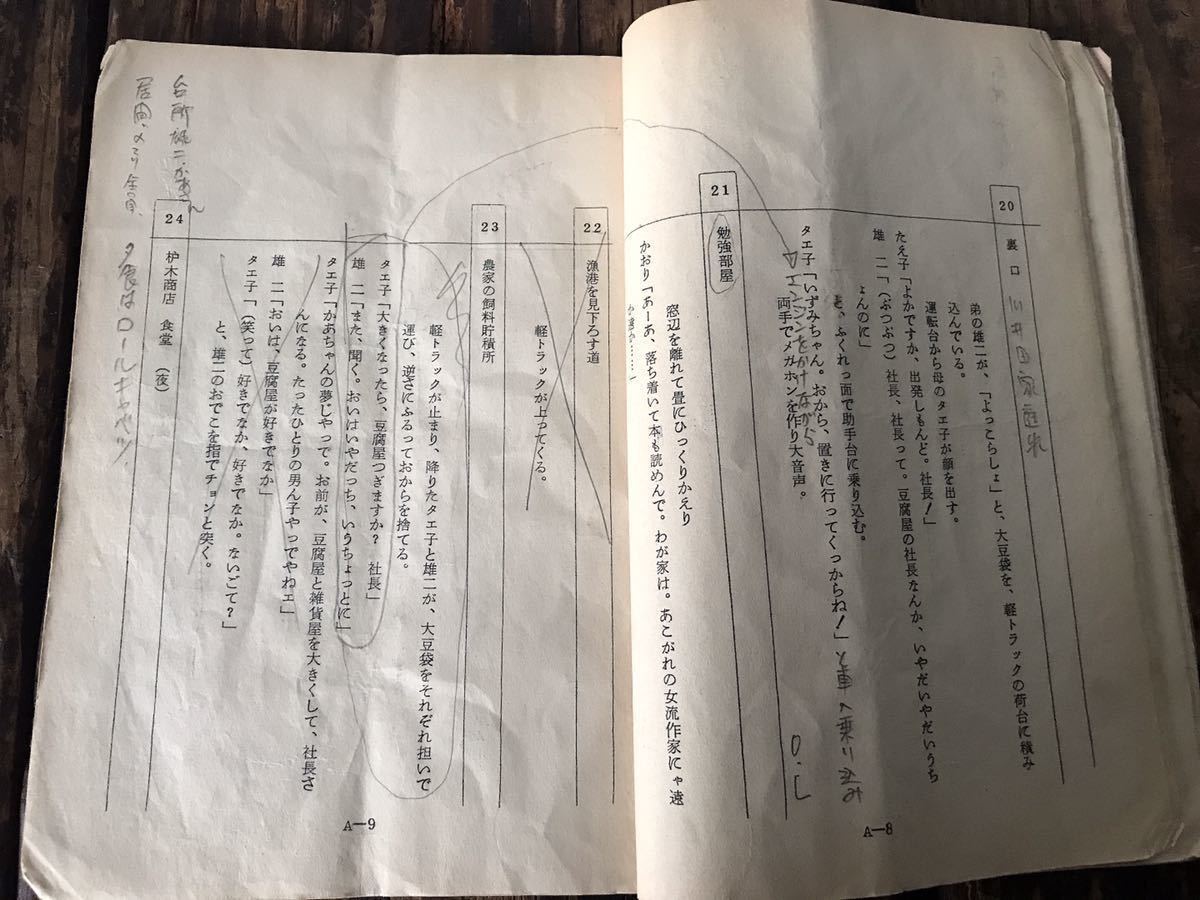 20
裏口
弟の雄二が、「よっこらしょ」と、大豆袋を、軽トラックの荷台に積み
込んでいる。
運転台から母のタエ子が顔を出す。
たえ子「よかですか、出発しもんど。社長!」
雄 二「(ぶつぶつ)社長、社長って。豆腐屋の社長なんか、いやだいやだいうち
ょんのに」
と、ふくれっ面で助手台に乗り込む。
エンジンをかけながら
タエ子「いずみちゃん。おから、置きに行ってくっからね!」
と車へ乗り込み
両手でメガホンを作り大音声。
O.L
21
勉強部屋
窓辺を離れて畳にひっくりかえり
かおり「あーあ、落ち着いて本も読めんで。わが家は。あこがれの女流作家にゃ遠
か遠か……」
A—8
22
漁港を見下ろす道
軽トラックが上ってくる。
23
農家の飼料貯積所
軽トラックが止まり、降りたタエ子と雄二が、大豆袋をそれぞれ担いで
運び、逆さにふるっておからを捨てる。
タエ子「大きくなったら、豆腐屋つぎますか? 社長」
雄 二「また、聞く。おいはいやだっち、いうちょっとに」
タエ子「かあちゃんの夢じやって。お前が、豆腐屋と雑貨屋を大きくして、社長さ
んになる。たったひとりの男ん子やっでやねェ」
雄 二「おいは、豆腐屋が好きでなか」
タエ子「(笑って)好きでなか、好きでなか。ないごて?」
と、雄二のおでこを指でチョンと突く。
24
枦木商店 食堂 (夜)
夕食はロールキャベツ、
台所 雄二、かあさん
A—9